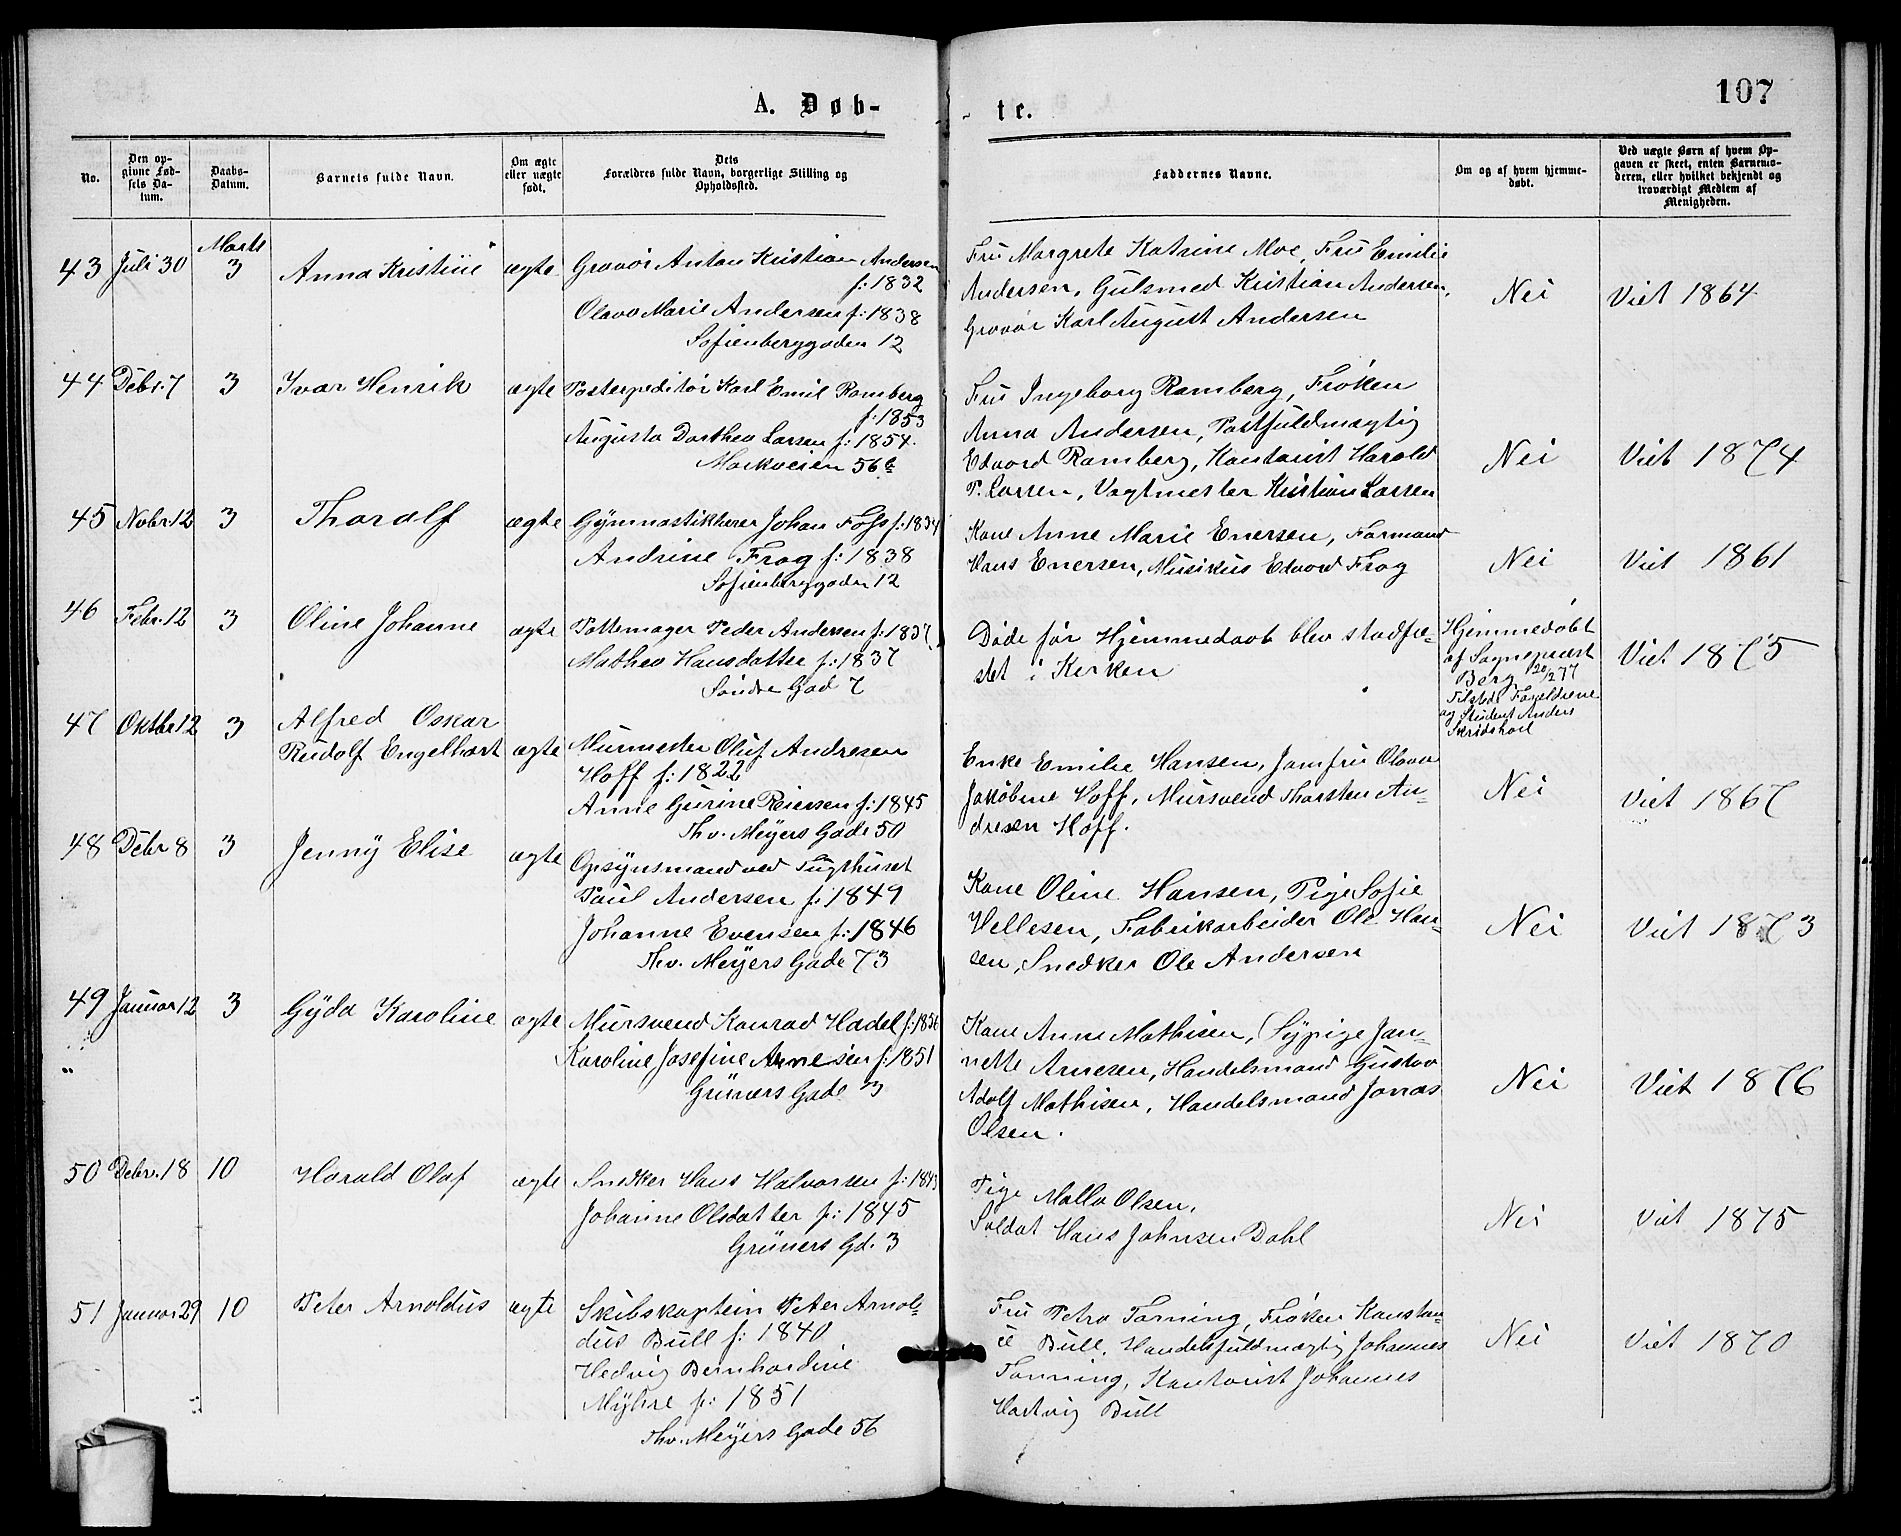 107
A. Døb- te.
No.
Den opgivne Fødsels Datum.
Daabs-Datum.
Barnets fulde Navn.
Om ægte eller uægte født.
Dets Forældres fulde Navn, borgerlige Stilling og Opholdssted.
Faddernes Navne.
Om og af hvem hjemmedøbt.
Ved uægte Børn af hvem Opgaven er skeet, enten Barnemoderen, eller hvilket bekjendt og troværdigt Medlem af Menigheden.
Marts
43 Juli 30 3 Anna Kristine ægte
Gravør Anton Kristian Andersen
f: 1832
Olava Marie Andersen f: 1838
Sofienberggaden 12
Fru Margrete Katrine Moe, Fru Emilie
Andersen, Gulsmed Kristian Andersen,
Gravør Karl August Andersen
Nei
Viet 1864
44 Debr. 7 3 Ivar Henrik ægte
Postexpeditør Karl Emil Ramberg
f: 1853
Augusta Dorthea Larsen f: 1854.
Markveien 56
Fru Ingeborg Ramberg, Frøken
Anna Andersen, Postfuldmægtig
Edvard Ramberg, Kontorist Harald
T. Larsen, Vagtmester Kristian Larsen
Nei
Viet 1874
45 Nobr. 12 3 Thoralf ægte
Gymnastiklærer Johan Foss f: 1834
Andrine Frog f: 1838
Sofienberggaden 12
Kone Anne Marie Enersen, Formand
Hans Enersen, Musikus Edvard Frog
Nei
Viet 1861
46 Febr. 12 3 Oline Johanne ægte
Pottemager Peder Andersen f: 1837,
Mathea Hansdatter f: 1837
Søndre Gad 7
Døde før Hjemmedaab blev stadfæ-
stet i Kirken
Hjemmedøbt
af Sogneprest
Berg 20/2 77
Tilstede Forældrene
og Student Anders
Viet 1875
47 Oktbr 12 3 Alfred Oskar
Rudolf Engelhart ægte
Murmester Oluf Andresen
Hoff f: 1822
Anne Gurine Reiersen f: 1845
Thv. Meyers Gade 50
Enke Emilie Hansen, Jomfru Olava
Jakobine Hoff, Mursvend Thorsten An-
dresen Hoff.
Nei
Viet 1867
48 Debr 8 3 Jenny Elise ægte
Opsynsmand ved Tugthuset
Paul Andersen f: 1849
Johanne Evensen f: 1846
Thv. Meyers Gade 73
Kone Oline Hansen, Pige Sofie
Hellesen, Fabrikarbeider Ole Han-
sen, Snedker Ole Andersen
Nei
Viet 1873
49 Januar 12 3 Gyda Karoline ægte
Mursvend Konrad Hadel f: 1856
Karoline Josefine Arnesen f: 1851
Grüners Gade 3
Kone Anne Mathisen, Sypige Jan-
nette Arnesen, Handelsmand Gustav
Adolf Mathisen, Handelsmand Jonas
Olsen.
Nei
Viet 1876
50 Debr. 18 10 Harald Olaf ægte
Snedker Hans Halvorsen f: 1843
Johanne Olsdatter f: 1845
Grüners Gd. 3
Pige Malla Olsen,
Soldat Hans Johnsen Dahl
Nei
Viet 1875
51 Januar 29 10 Peter Arnoldus ægte
Skibskaptein Peter Arnol-
dus Bull f: 1840
Hedvig Bernhardine
Myhre f: 1851
Thv. Meyers Gade 56
Fru Petra Tønning, Frøken Konstan-
ce Bull, Handelsfuldmægtig Johannes
Tønning, Kontorist Johannes
Hartvig Bull
Nei
Viet 1870